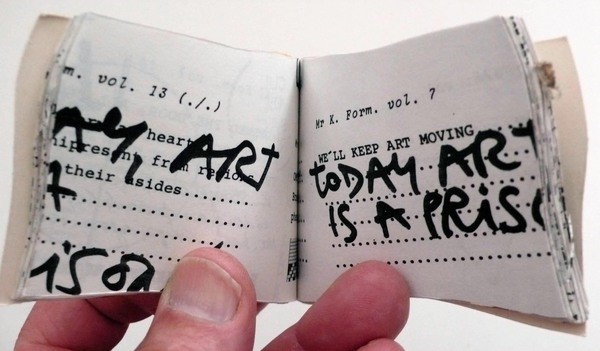 m. vol. 13 (./.)
heart
ART
nipresent from region
their asides
Mr K. Form. vol. 7
WE'LL KEEP ART MOVING
TODAY ART
IS A PRISO